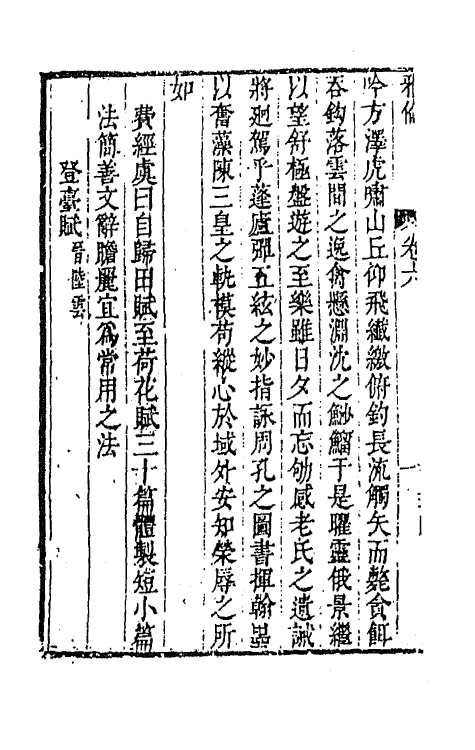 雅倫　卷六
吟方澤虎嘯山丘仰飛纖繳俯釣長流觸矢而斃貪餌
吞鈎落雲間之逸禽懸淵沈之魦鰡于是曜靈俄景繼
以望舒極盤遊之至樂雖日夕而忘劬感老氏之遺誡
將廻駕乎蓬廬彈五絃之妙指詠周孔之圖書揮翰墨
以奮藻陳三皇之軌模苟縱心於域外安知榮辱之所
如
費經虞曰自歸田賦至荷花賦三十篇體製短小篇
法簡善文辭贍麗宜為常用之法
登臺賦 晉陸雲